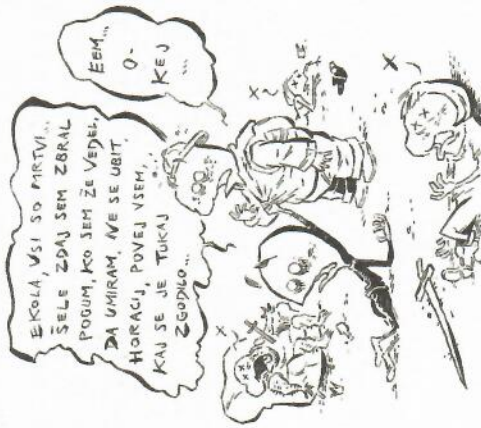 EKOLA, VSI SO MRTVI...
ŠELE ZDAJ SEM ZBRAL
POGUM, KO SEM ŽE VEDEL,
DA UMIRAM, NE SE UBIT.
HORACIJ, POVEJ VSEM,
KAJ SE JE TUKAJ
ZGODILO...
EEM...
O-
KEJ
...
X
X
X